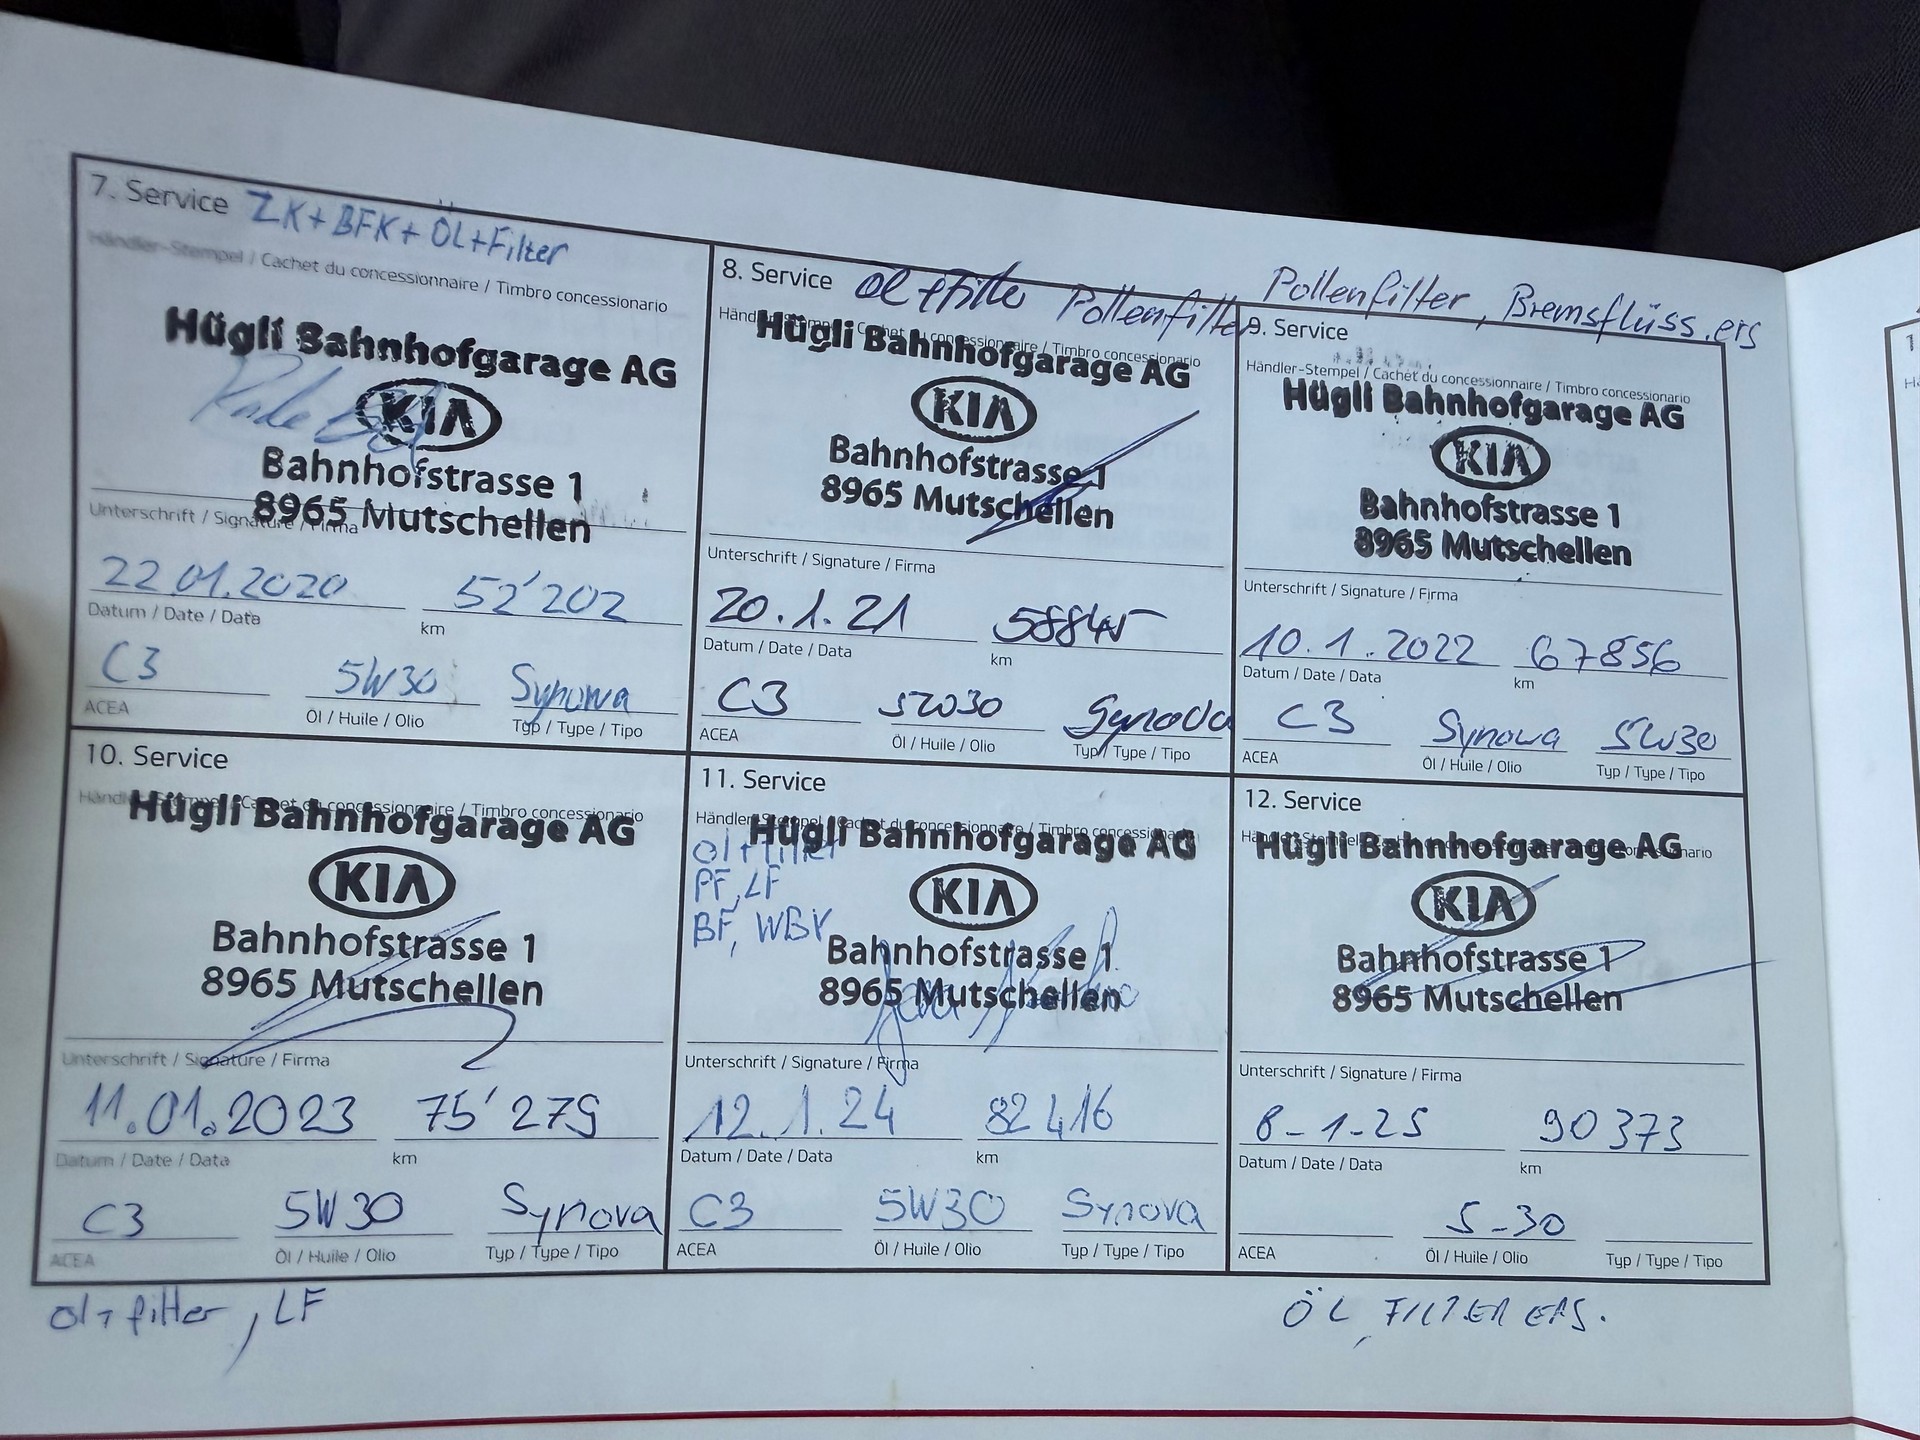 7. Service ZK+BFK+ÖL+Filter
Händler-Stempel / Cachet du concessionnaire / Timbro concessionario
Hügli Bahnhofgarage AG
KIA
Bahnhofstrasse 1
8965 Mutschellen
Unterschrift / Signature / Firma
22.01.2020 52'202
Datum / Date / Data km
C3 5W30 Synowa
ACEA Öl / Huile / Olio Typ / Type / Tipo
8. Service Öl + Filter Pollenfilter
Händler-Stempel / Cachet du concessionnaire / Timbro concessionario
Hügli Bahnhofgarage AG
KIA
Bahnhofstrasse 1
8965 Mutschellen
Unterschrift / Signature / Firma
20.1.21 58845
Datum / Date / Data km
C3 5W30 Synova
ACEA Öl / Huile / Olio Typ / Type / Tipo
Pollenfilter, Bremsflüss.ers
9. Service
Händler-Stempel / Cachet du concessionnaire / Timbro concessionario
Hügli Bahnhofgarage AG
KIA
Bahnhofstrasse 1
8965 Mutschellen
Unterschrift / Signature / Firma
10.1.2022 67856
Datum / Date / Data km
C3 Synowa 5W30
ACEA Öl / Huile / Olio Typ / Type / Tipo
10. Service
Händler-Stempel / Cachet du concessionnaire / Timbro concessionario
Hügli Bahnhofgarage AG
KIA
Bahnhofstrasse 1
8965 Mutschellen
Unterschrift / Signature / Firma
11.01.2023 75'279
Datum / Date / Data km
C3 5W30 Synova
ACEA Öl / Huile / Olio Typ / Type / Tipo
öl+filter, LF
11. Service
Händler-Stempel / Cachet du concessionnaire / Timbro concessionario
Hügli Bahnhofgarage AG
Öl+Filter
PF, LF
BF, WBV
KIA
Bahnhofstrasse 1
8965 Mutschellen
Unterschrift / Signature / Firma
12.1.24 82416
Datum / Date / Data km
C3 5W30 Synova
ACEA Öl / Huile / Olio Typ / Type / Tipo
12. Service
Händler-Stempel / Cachet du concessionnaire / Timbro concessionario
Hügli Bahnhofgarage AG
KIA
Bahnhofstrasse 1
8965 Mutschellen
Unterschrift / Signature / Firma
8-1-25 90373
Datum / Date / Data km
5-30
ACEA Öl / Huile / Olio Typ / Type / Tipo
ÖL, FILTER ERS.